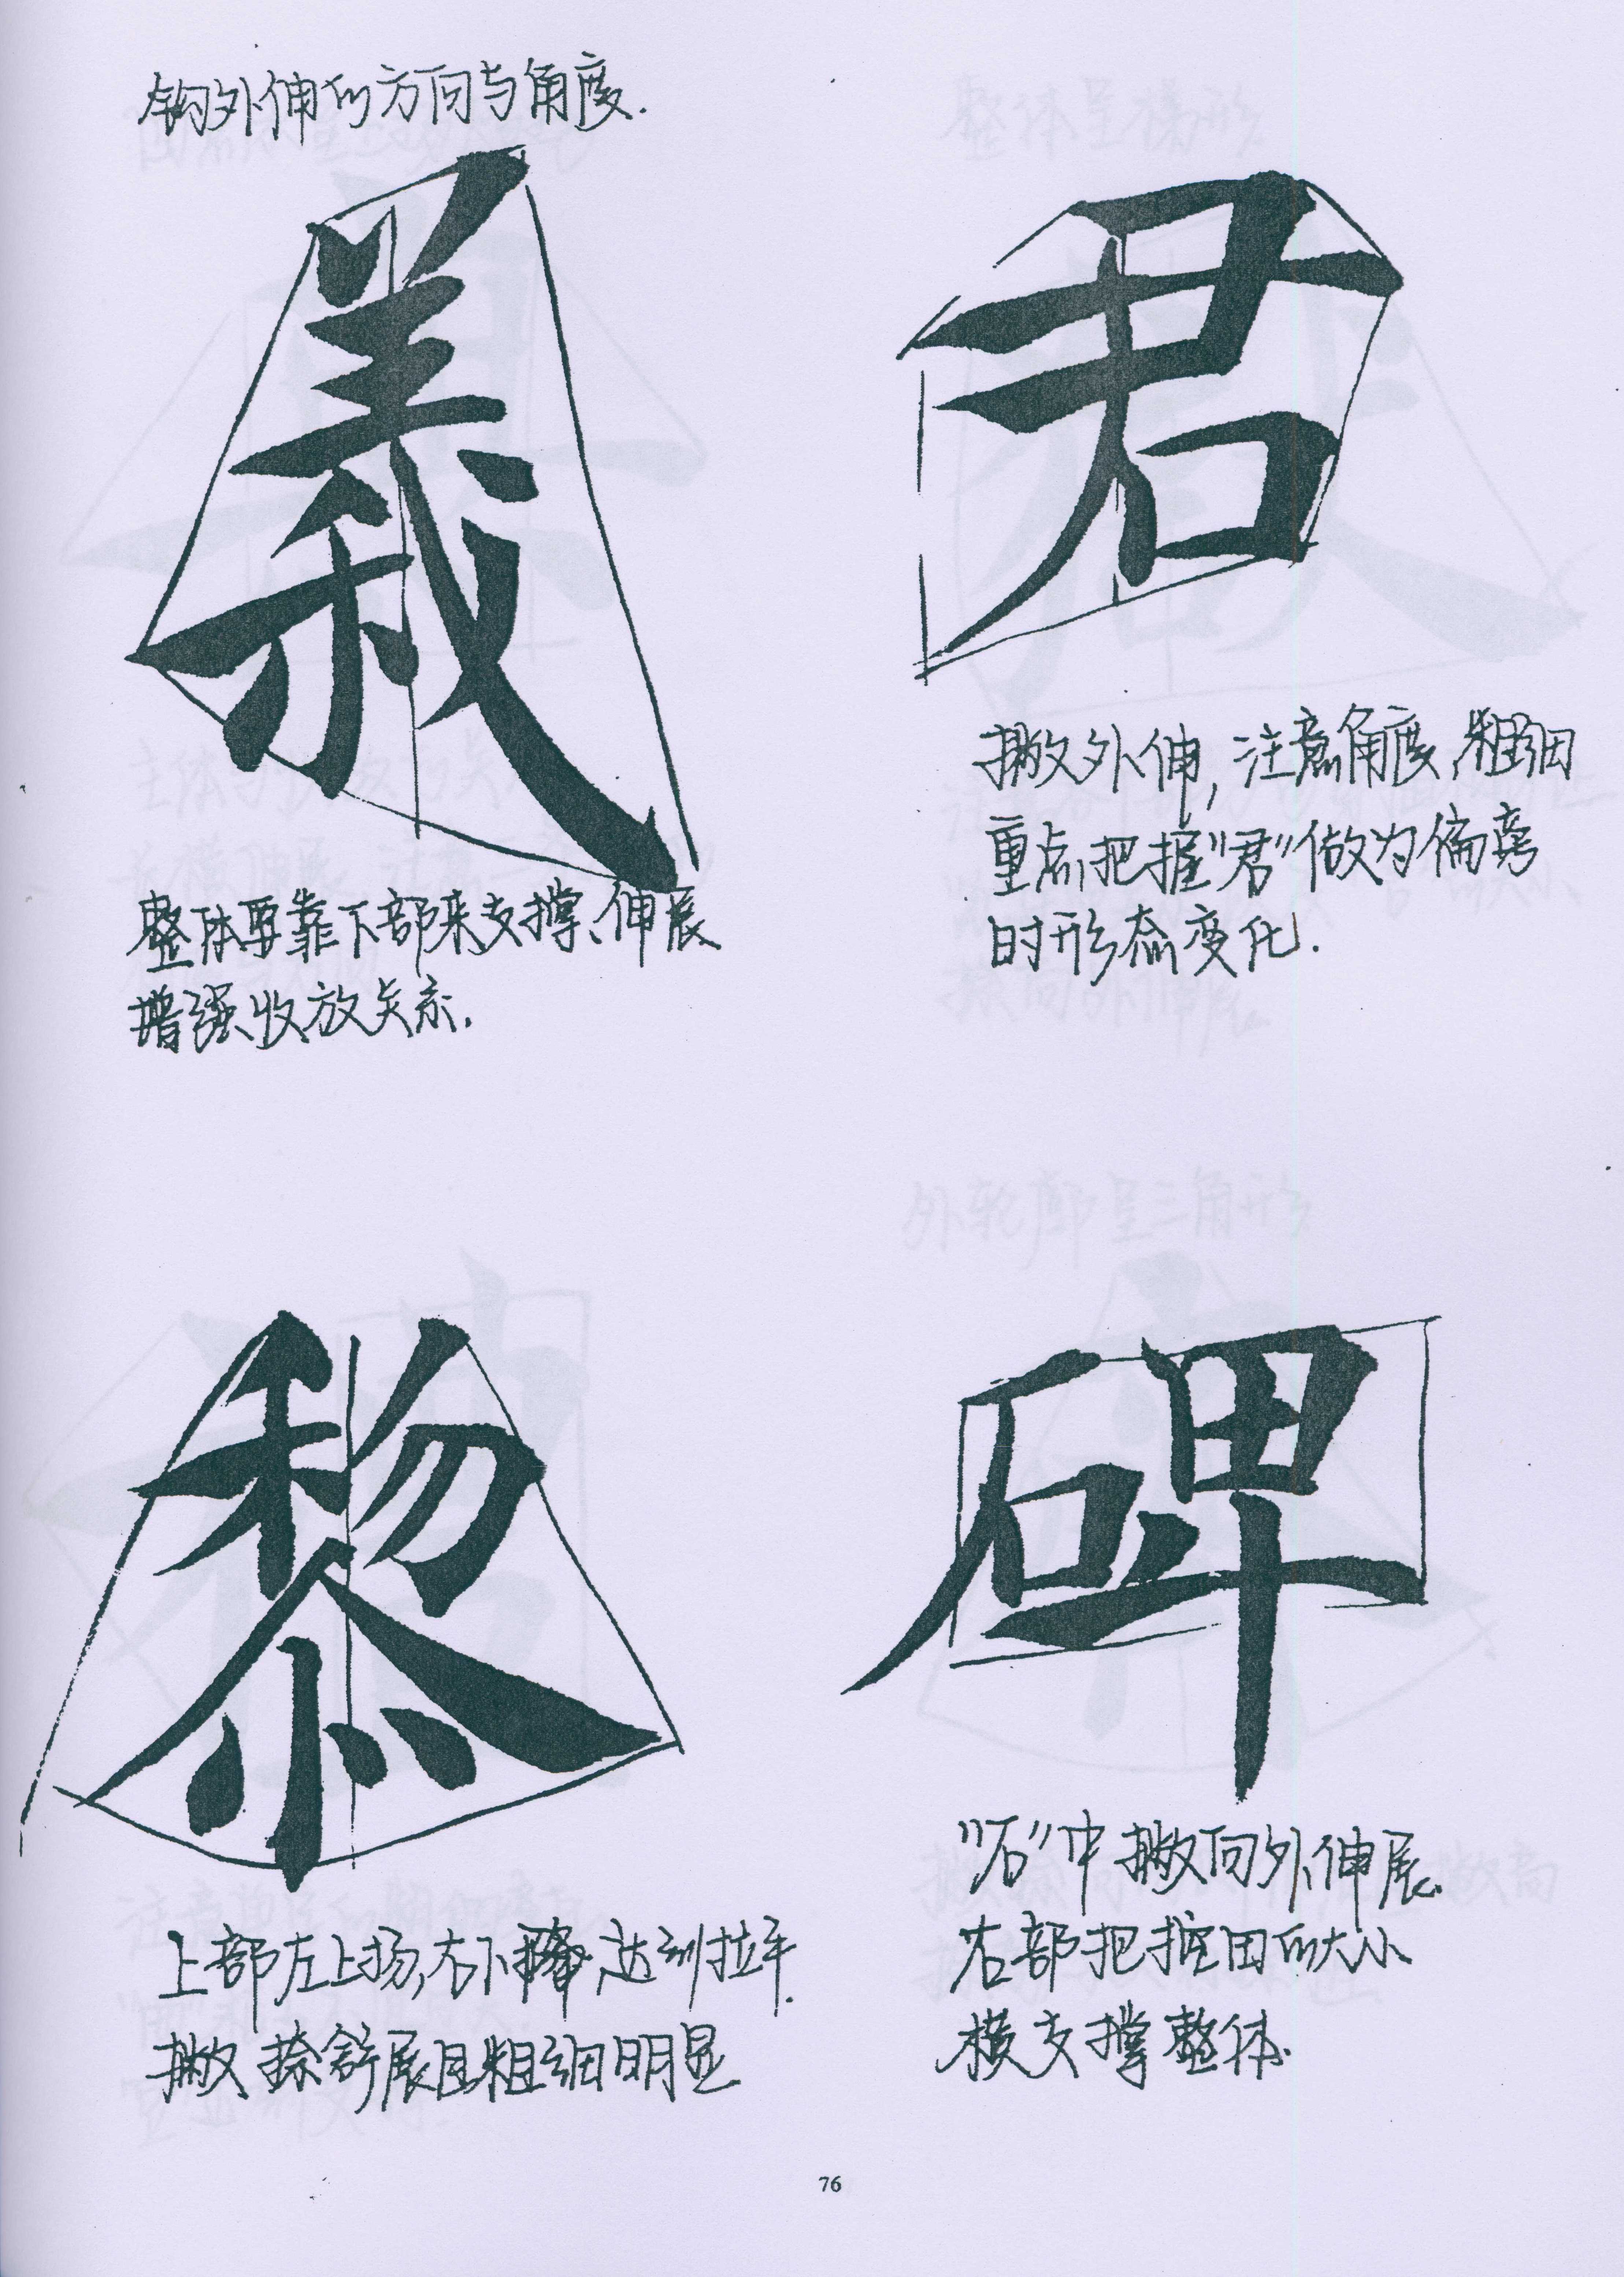 钩外伸的方向与角度.
義
整体要靠下部来支撑、伸展
增强收放关系.
君
撇外伸,注意角度,粗细
重点把握“君”做为偏旁
时形态变化.
黎
上部左上扬,右下降,达到拉平.
撇捺舒展且粗细明显
碑
“石”中撇向外伸展.
右部把握田的大小
横支撑整体.
76